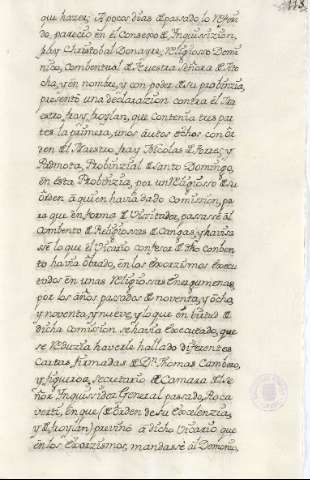 que hazer; A pocos dias de pasado lo referi
do, parecio en el Consexo de Inquisizion,
fray Christobal Donayre, Religiosso Domi
nico, combentual de Nuestra Señora de Ato
cha, y en nombre, y con poder de su probinzia,
presento una declarazion contra el Ma
estro fray froylan, que contenia tres par
tes la primera, unos autos echos con ôr
den del Maestro fray Nicolas de Torres, y
Padmota, Probinzial de Santo Domingo,
en esta Probinzia, por un Religiosso de su
ôrden a quien havia dado comision, pa
ra que en forma de Visitador, passasse al
Combento de Religiossas de Cangas, y havisa
sse lo que el Vicario confesor de dho conben
to havia ôbrado, en los exorzismos execu
tados en unas Religiossas Energumenas,
por los años pasados de noventa, y ôcho,
y noventa, y nueve, y lo que en birtud de
dicha comision se havia executado, que
se reduzia haverse hallado diferentes
cartas firmadas de Dn. Thomas Cambero,
y figueroa, Secretario de Camara del Se
ñor Inquisidor General pasado, Roca
verti, En que (de Orden de su Excelenzia,
y de froylan) previno a dicho Vicario que
en los Exorzismos, mandasse al Demonio,